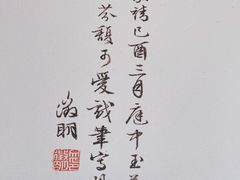 靖己酉三月庭中玉
芬馥可愛戲筆寫
徵明